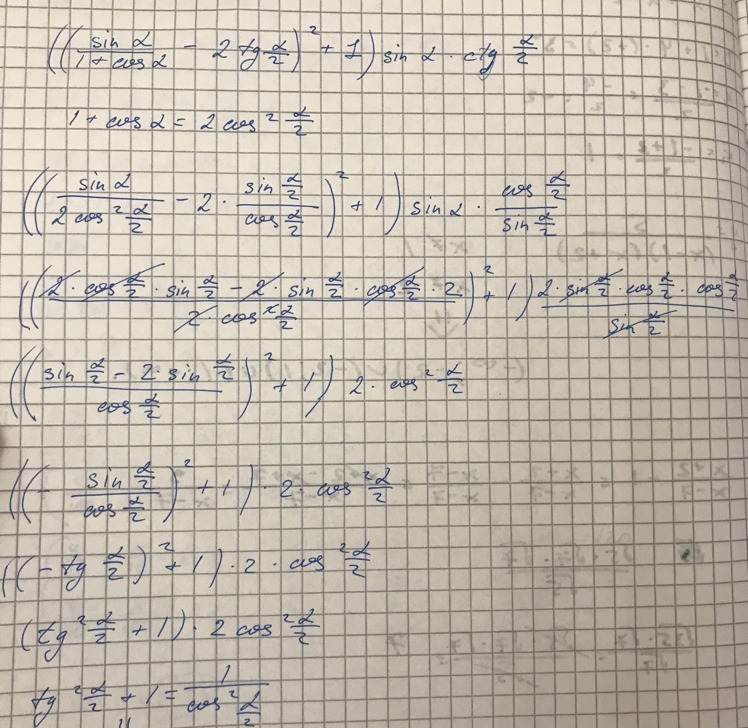 ((sin α / 1 + cos α − 2 tg α/2)² + 1) sin α · ctg α/2
1 + cos α = 2 cos² α/2
((sin α / 2 cos² α/2 − 2 · sin α/2 / cos α/2)² + 1) sin α · cos α/2 / sin α/2
((2 · cos α/2 · sin α/2 − 2 · sin α/2 · cos α/2 · 2 / 2 cos² α/2)² + 1) 2 · sin α/2 · cos α/2 · cos α/2 / sin α/2
((sin α/2 − 2 · sin α/2 / cos α/2)² + 1) 2 · cos² α/2
((− sin α/2 / cos α/2)² + 1) · 2 · cos² α/2
((− tg α/2)² + 1) · 2 · cos² α/2
(tg² α/2 + 1) · 2 cos² α/2
tg² α/2 + 1 = 1 / cos² α/2